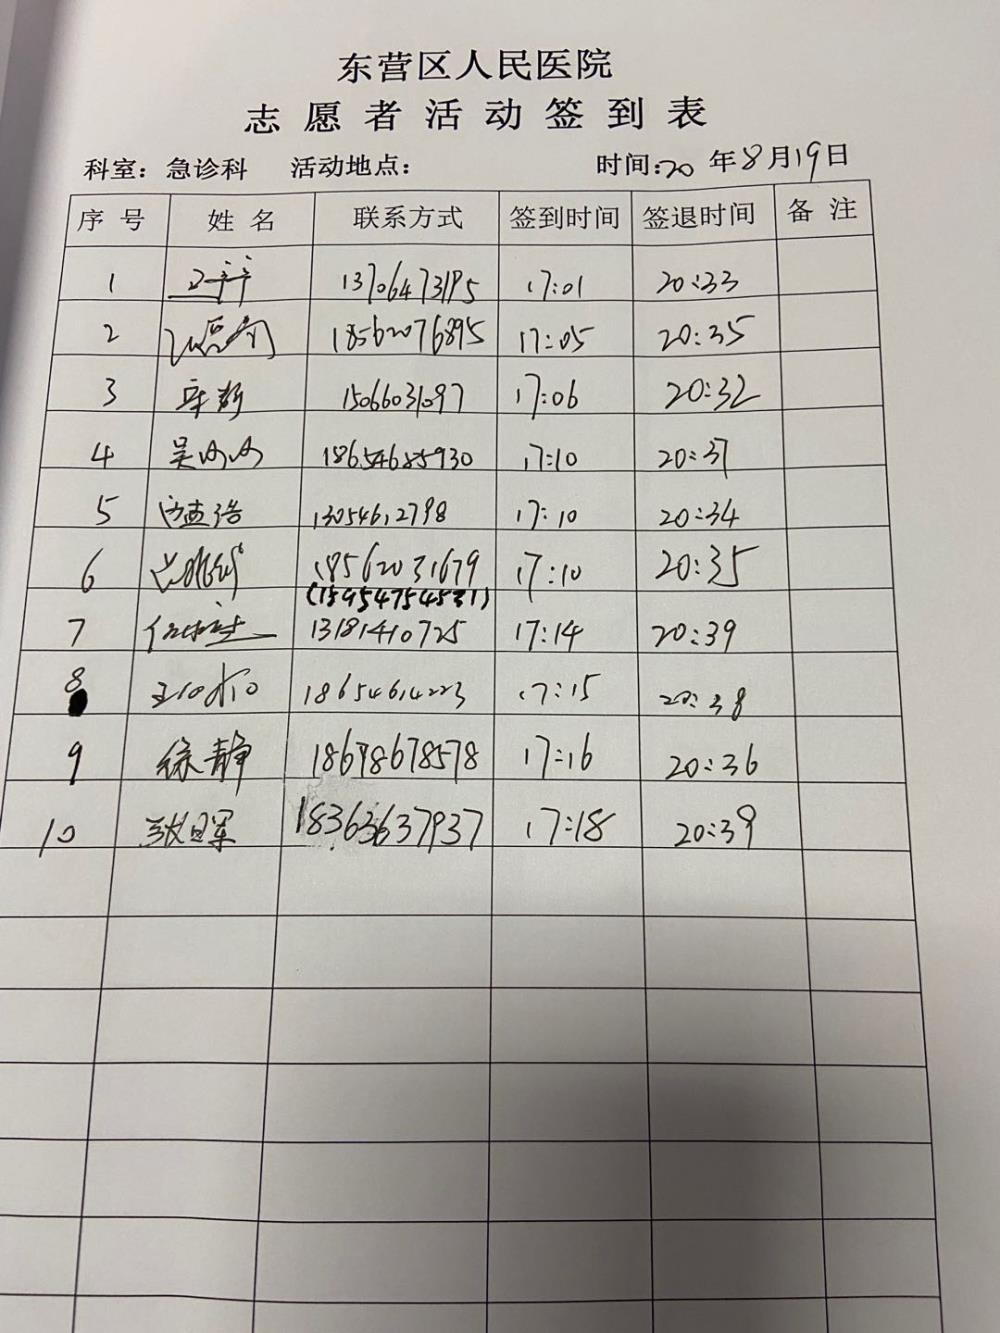 东营区人民医院
志愿者活动签到表
科室：急诊科 活动地点： 时间:20 年8月19日
序号 姓名 联系方式 签到时间 签退时间 备注
1 13706473195 17:01 20:33
2 18562076895 17:05 20:35
3 15066031097 17:06 20:32
4 吴 18654685930 17:10 20:37
5 13054612798 17:10 20:34
6 18562031679 17:10 20:35
(15954754531)
7 13181410725 17:14 20:39
8 18654614223 17:15 20:38
9 徐静 18678678578 17:16 20:36
10 18363637937 17:18 20:39